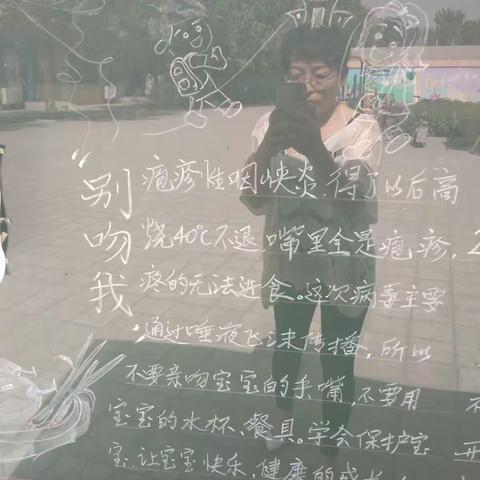 别吻我
疱疹性咽峡炎,得了以后高
烧40℃不退,嘴里全是疱疹,
疼的无法进食。这次病毒主要
通过唾液飞沫传播,所以
不要亲吻宝宝的手嘴,不要用
宝宝的水杯、餐具。学会保护宝
宝,让宝宝快乐、健康的成长